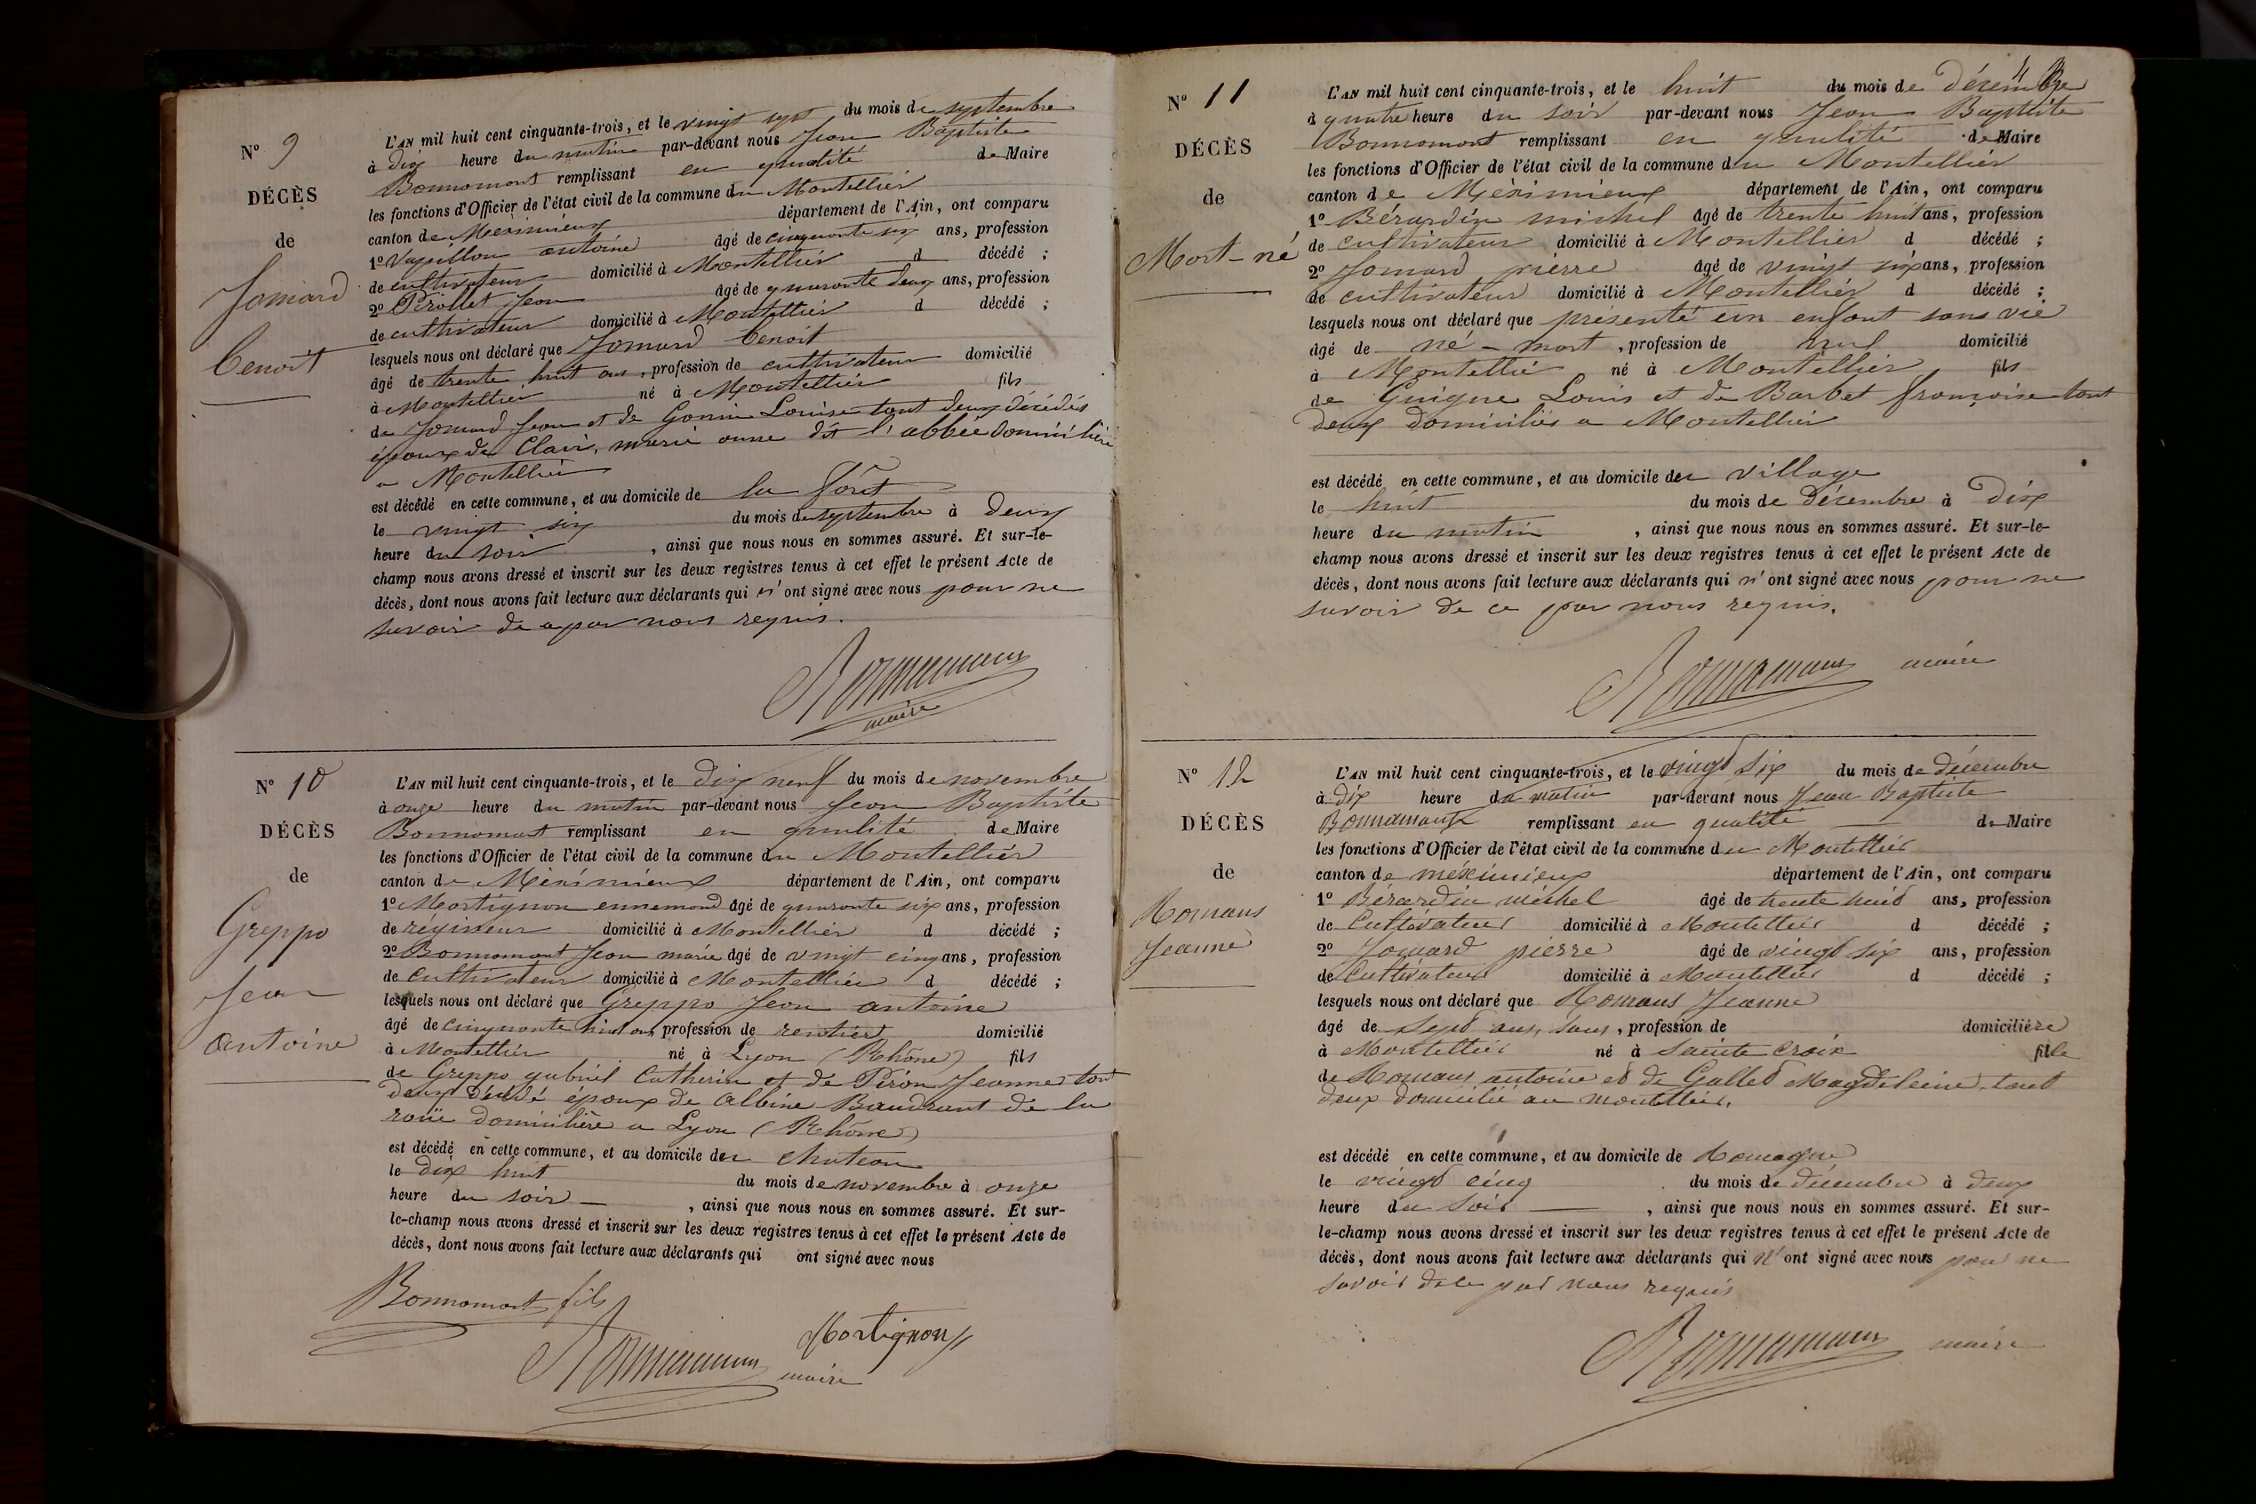 N° 9
DÉCÈS
de
Jomard
Benoit
L'AN mil huit cent cinquante-trois, et le vingt sept du mois de septembre
à dix heure du matin par-devant nous Jean Baptiste
Bonnomont remplissant en qualité de Maire
les fonctions d'Officier de l'état civil de la commune du Montellier
canton de Méximieux département de l'Ain, ont comparu
1° antoine âgé de cinquante six ans, profession
de cultivateur domicilié à Montellier d décédé ;
2° Pirollet Jean âgé de quaronte deux ans, profession
de cultivateur domicilié à Montellier d décédé ;
lesquels nous ont déclaré que Jomard benoit
âgé de trente huit ans, profession de cultivateur domicilié
à Montellier né à Montellier fils
de Jomard Jean et de Gonin Louise tout deux décédés
époux de Clair, marie anne dit l'abbée domicilière
a Montellier
est décédé en cette commune, et au domicile de la forêt
le vingt six du mois de septembre à deux
heure du soir, ainsi que nous nous en sommes assuré. Et sur-le-
champ nous avons dressé et inscrit sur les deux registres tenus à cet effet le présent Acte de
décès, dont nous avons fait lecture aux déclarants qui n'ont signé avec nous pour ne
savoir de ce par nous requis.
Bonnomont
maire
N° 10
DÉCÈS
de
Greppo
Jean
antoine
L'AN mil huit cent cinquante-trois, et le dix neuf du mois de novembre
à onze heure du matin par-devant nous Jean Baptiste
Bonnomont remplissant en qualité de Maire
les fonctions d'Officier de l'état civil de la commune du Montellier
canton de Méximieux département de l'Ain, ont comparu
1° Mortignon ennemond âgé de quaronte six ans, profession
de regisseur domicilié à Montellier d décédé ;
2° Bonnomont Jean marie âgé de vingt cinq ans, profession
de cultivateur domicilié à Montellier d décédé ;
lesquels nous ont déclaré que Greppo Jean antoine
âgé de cinquonte huit ans, profession de rentier domicilié
à Montellier né à Lyon (Rhône) fils
de Greppo gabriel Catherin et de Piron Jeanne tout
deux décédé époux de albine Baudrant de la
roüe domicilière a Lyon (Rhône)
est décédé en cette commune, et au domicile du chateau
le dix huit du mois de novembre à onze
heure du soir, ainsi que nous nous en sommes assuré. Et sur-
le-champ nous avons dressé et inscrit sur les deux registres tenus à cet effet le présent Acte de
décès, dont nous avons fait lecture aux déclarants qui ont signé avec nous
Bonnomont fils
Mortignon
Bonnomont maire
4
N° 11
DÉCÈS
de
Mort-né
L'AN mil huit cent cinquante-trois, et le huit du mois de décembre
à quatre heure du soir par-devant nous Jean Baptiste
Bonnomont remplissant en qualité de Maire
les fonctions d'Officier de l'état civil de la commune du Montellier
canton de Méximieux département de l'Ain, ont comparu
1° Bérardin michel âgé de trente huit ans, profession
de cultivateur domicilié à Montellier d décédé ;
2° Jomard pierre âgé de vingt six ans, profession
de cultivateur domicilié à Montellier d décédé ;
lesquels nous ont déclaré que présenté un enfant sans vie
âgé de né-mort, profession de nul domicilié
à Montellier né à Montellier fils
de Guigue Louis et de Barbet françoise tout
deux domiciliés a Montellier
est décédé en cette commune, et au domicile du village
le huit du mois de décembre à dix
heure du matin, ainsi que nous nous en sommes assuré. Et sur-le-
champ nous avons dressé et inscrit sur les deux registres tenus à cet effet le présent Acte de
décès, dont nous avons fait lecture aux déclarants qui n'ont signé avec nous pour ne
savoir de ce par nous requis.
Bonnomont maire
N° 12
DÉCÈS
de
Romans
Jeanne
L'AN mil huit cent cinquante-trois, et le vingt six du mois de décembre
à dix heure du matin par-devant nous Jean Baptiste
Bonnamont remplissant en qualité de Maire
les fonctions d'Officier de l'état civil de la commune du Montellier
canton de méximieux département de l'Ain, ont comparu
1° Bérardin michel âgé de trente huit ans, profession
de Cultivateur domicilié à Montellier d décédé ;
2° Jomard pierre âgé de vingt six ans, profession
de Cultivateur domicilié à Montellier d décédé ;
lesquels nous ont déclaré que Romans Jeanne
âgé de sept ans, sans, profession de domiciliére
à Montellier né à Sainte Croix fille
de Romans antoine et de Gallet Magdeleine, tout
deux domicilié au montellier.
est décédé en cette commune, et au domicile de Romagne
le vingt cinq du mois de décembre à deux
heure du soir, ainsi que nous nous en sommes assuré. Et sur-
le-champ nous avons dressé et inscrit sur les deux registres tenus à cet effet le présent Acte de
décès, dont nous avons fait lecture aux déclarants qui n'ont signé avec nous pour ne
savoir de ce par nous requis
Bonnomont maire